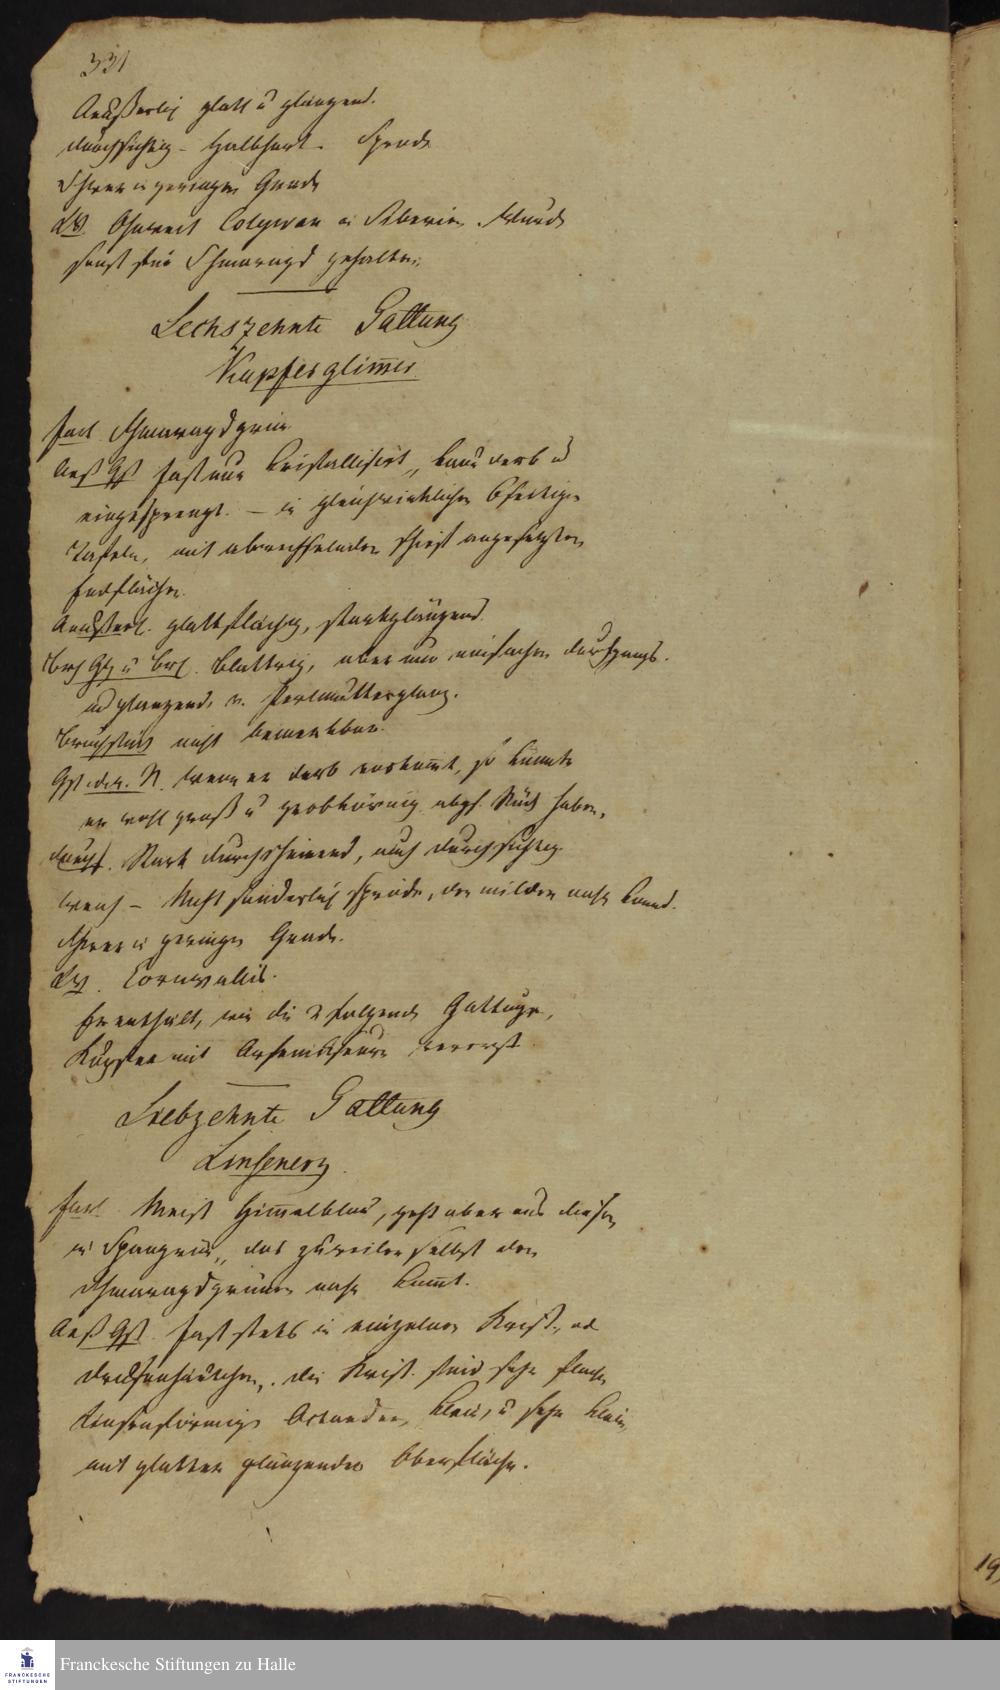 331
Aeußerlich glatt u glänzend.
durchsichtig – Halbhart – Spröde
Schwer in geringen Grade
Ohnweit Colywan in Siberien. Wurde
sonst für Schmaragd gehalten.
Sechszehnte Gattung
Kupferglim̅er
Farb. Schmaragdgrün
Aeß Gst fast nur kristallisirt, kaum derb u
eingesprengt. – in gleichwinklichen 6seitigen
Tafeln, mit abwechselnden schief angesetzten
Endflächen.
Aeußerl. glattflächig, starkglänzend.
Blättrig, aber nur einfachen Durchgangs.
glänzend, v. Perlmutterglanz.
Bruchstück nicht bemerkbar.
wenn er derb vorkom̅t, so könnte
er wohl groß u grobkörnig abgs. Stück haben.
Durchs. Stark durchscheinend, auch durchsichtig
weich – Nicht sonderlich spröde, dem milden nahe kom̅d.
Schwer in geringen Grade.
Cornwallis.
Er enthält, wie die 2 folgende Gattungen,
Kupfer mit Arseniksäure vererzt
Siebzehnte Gattung
Linsenerz
Farb. Meist Him̅elblau, geht aber aus diesem
in Spangrün, das zuweilen selbst dem
Schmaragdgrünen nahe kom̅t.
Aeß Gst. fast stets in einzelnen Krist. od
Drusenhäutchen, die Krist. sind sehr flache
linsenförmige Octaeder, klein, u sehr klein,
mit glatter glänzender Oberfläche.
19
Franckesche Stiftungen zu Halle
FRANCKESCHE
STIFTUNGEN